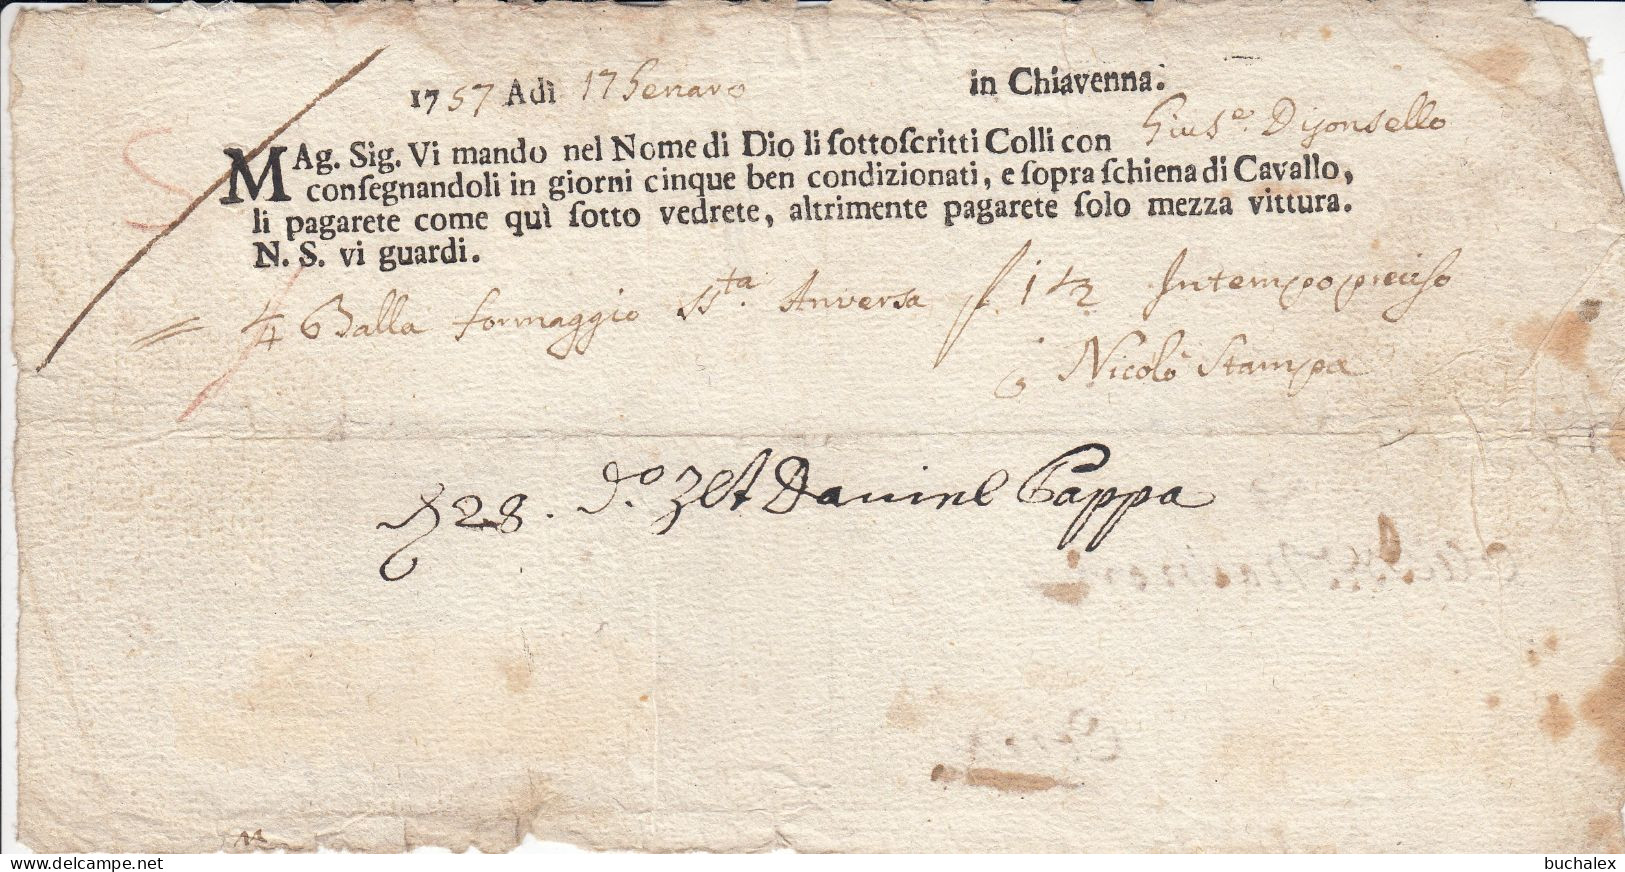 1757 Adì 17 Genaro in Chiavenna.
MAg. Sig. Vi mando nel Nome di Dio li ſottoſcritti Colli con Giusᵉ.
conſegnandoli in giorni cinque ben condizionati, e ſopra ſchiena di Cavallo,
li pagarete come quì ſotto vedrete, altrimente pagarete ſolo mezza vittura.
N. S. vi guardi.
Balla formaggio Anversa f. 1 1/2 In tempo preciso
Nicolò Stampa
28. dº Pappa
buchalex